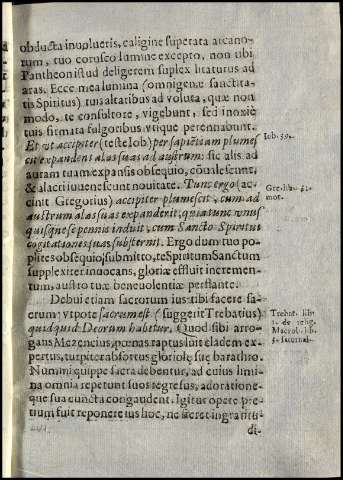 obducta inuplueris, caligine superata arcano-
rum, tuo corusco lumine excepto, non tibi
Pantheon istud deligerem suplex litaturus ad
aras. Ecce mea lumina (omnigenæ sanctita-
tis Spiritus) tuis altaribus ad voluta, quæ non
modo, te consultore, vigebunt, sed inoxie
tuis sitmata fulgoribus vtique perennabunt.
Et vt accipiter (teste Iob) per sapiẽtiam plumes
cit expandens alas suas ad austrum: sic alis ad
auram tuam expansis obsequio, cõualescunt,
& alacri iuuenescunt nouitate. Tunc ergo (ac-
cinit Gregorius) accipiter plumescit, cum ad
austrum alas suas expanderit, quia tunc vnus
quisque se pennis induit, cum Sancto Spiritui
cogitationes suas substernit. Ergo dum tuo po-
plites obsequio submitto, te Spiritum Sanctum
supplexiter inuocans, gloriæ estuit incremen-
tum, austro tuæ beneuolentiæ perflante.
Debui etiam sacrorum ius tibi facere sa-
crum: vtpote sacrum est (suggerit Trebatius)
quidquid Deorum habetur. Quod sibi arro-
gans Mezencius, pœnas raptus luit eladem ex-
pertus, turpiter absortus gloriolę suę barathro.
Numini quippe sacra debentur, ad cuius limi-
na omnia repetunt suos regresus, adoratione-
que sua cuncta congaudent. Igitur opere pre-
tium fuit reponere ius hoc, ne sacret ingratitu
di-
Iob. 39.
Greg. lib. 31.
mor.
Trebat. lib.
1. de relig.
Macrob. lib.
3. saturnal.